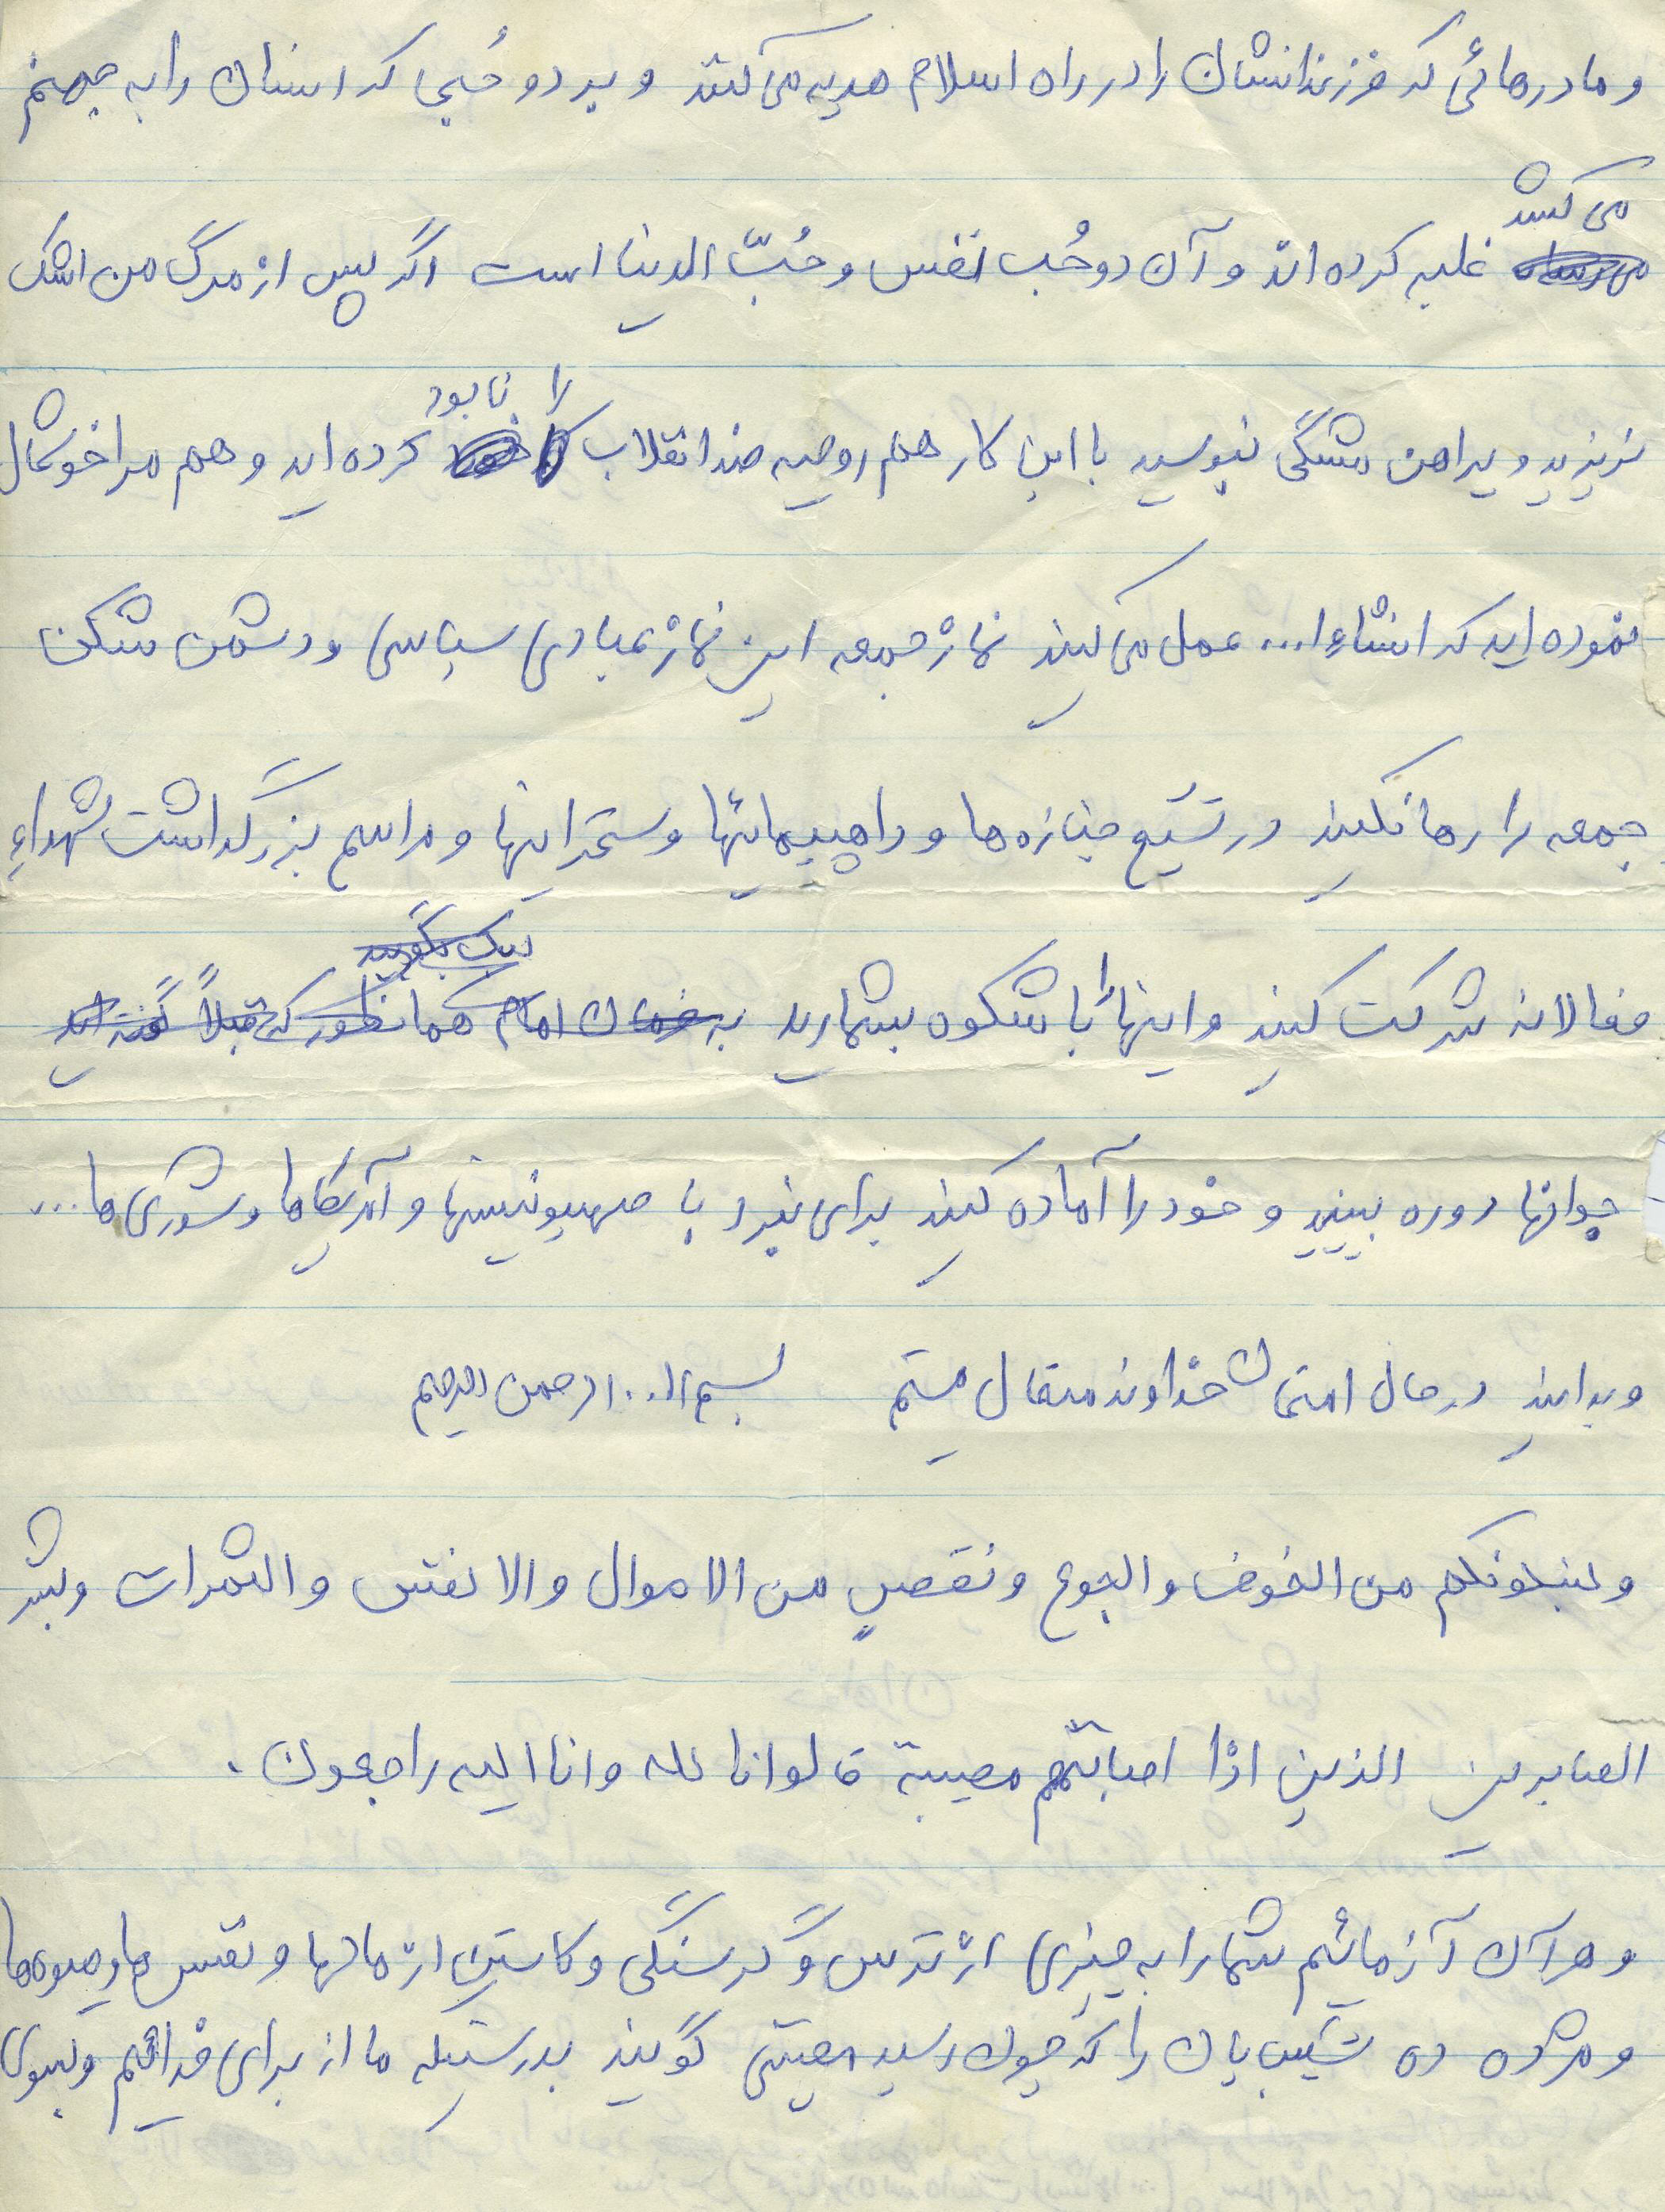 و مادرهائی که فرزندانشان را در راه اسلام هدیه می‌کنند و بر دو حُبی که انسان را به جهنم
می‌کشد
غلبه کرده‌اند و آن دو حُب النفس و حُبّ الدنیا است اگر پس از مرگ من اشک
را نابود
نریزید و پیراهن مشگی نپوسید با این کار هم روحیه ضد انقلاب کرده‌اید و هم مرا خوشحال
نموده‌اید که انشاءا... عمل می‌کنید نماز جمعه این نماز عبادی سیاسی و دشمن شکن
جمعه را رها نکنید در تشیع جنازه‌ها و راهپیمائیها و سخنرانیها و مراسم بزرگداشت شهداء
لبیک بگویید
فعالانه شرکت کنید و اینها را با شکوه بشمارید به فرمان امام همانطور که قبلاً گفته‌اند
جوانها دوره ببینید و خود را آماده کنید برای نبرد با صهیونیستها و آمریکاها و شوروی‌ها...
و بدانید در حال امتحان خداوند متعال هستیم بسم ا... الرحمن الرحیم
و لنبلونکم من الخوف و الجوع و نقصٍ من الاموال و الانفس و الثمرات و بشر
الصابرین الذین اذا اصابتهم مصیبة قالوا انا لله و انا الیه راجعون.
و هر آن آزمائیم شما را به چیزی از ترس و گرسنگی و کاستن از مالها و نفس‌ها و میوه‌ها
و مژده ده شکیبایان را که چون رسید مصیبتی گویند بدرستیکه ما از برای خدائیم و بسوی